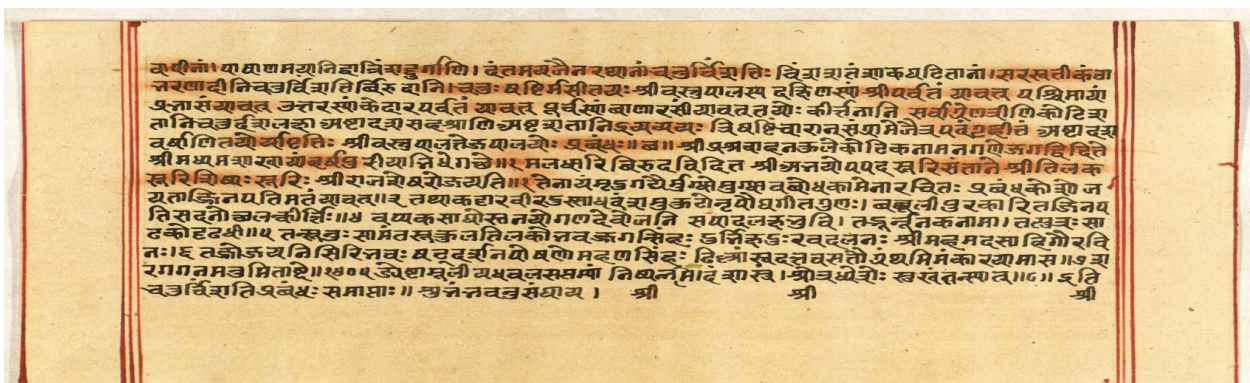 वापीनां। पाषाणमयानि द्वात्रिंशद्दुर्गाणि। दंतमयजैनरथानां चतुर्विंशतिः विंशंशतंशाकघटितानां। सरस्वतीकंठा
भरणादीनि चतुर्विंशतिर्बिरुदानि। चतुःषष्टिर्मसीतयः श्रीवस्तुपालस्य दक्षिणस्यां श्रीपर्वतं यावत् पश्चिमायां
प्रभासं यावत् उत्तरस्यां केदारपर्वतं यावत् पूर्वस्यां बाणारसीं यावत् तयोः कीर्त्तनानि सर्वाग्रेण त्रीणि कोटिश
तानि चतुर्दशलक्षा अष्टादशसहश्राणि अष्टशतानि द्रव्यव्ययः त्रिषष्टिवारान् संग्रामे जैत्रपदं गृहीतं अष्टादश
वर्षाणि तयोर्व्यापृतिः श्रीवस्तुपालतेजःपालयोः प्रबंधः॥ श्रीप्रश्नवाहनकुले कोटिकनामनि गणे जगद्विदिते
श्रीमध्यमशाखायां हर्षपुरीयाभिधे गच्छे॥१ मलधारिबिरुदविदित श्रीअभयोपपदसूरिसंताने श्रीतिलक
सूरिशिष्यः सूरिः श्रीराजशेखरो जयति॥२ तेनायं मृदुगद्यैर्मुग्धो मुग्धावबोधकामेन रचितः प्रबंधकोशो ज
यताज्जिनपतिमतं यावत्॥३ तथा कट्टारवीरदुस्साधुमुकुटो नृपौघगीतगुणः। बब्बूलीपुरकारितजिनप
तिसदनोच्छलत्कीर्त्तिः॥४ बप्पकसाधोस्तनयो गणदेवोऽजनि सपादलक्षभुवि। तद्भूर्नूनकनामा। तत्सुतः सा
ढको दृढधी॥५ तत्सुतः सामंतस्तत्कुलतिलकोऽभवज्जगत्सिंहः दुर्भिक्षदुःखदलनः श्रीमहमदसाहिगौरवि
नः।६ तज्जो जयति सिरिभवः षट्दर्शनपोषणो महणसिंहः दिल्यां स्वदत्तवसतौ ग्रंथमिमं कारयामास॥७ श
रगगनमनुमिताब्दे॥१४०५ ज्येष्टामूलीयधवलसप्तम्यां निष्पन्नमिदं शास्त्रं। श्रोत्रध्येत्रोः सुखं तन्यात्॥८॥ इति
चतुर्विंशतिप्रबंधः समाप्ताः॥ शुभं भवतु संघाय। श्री श्री श्री